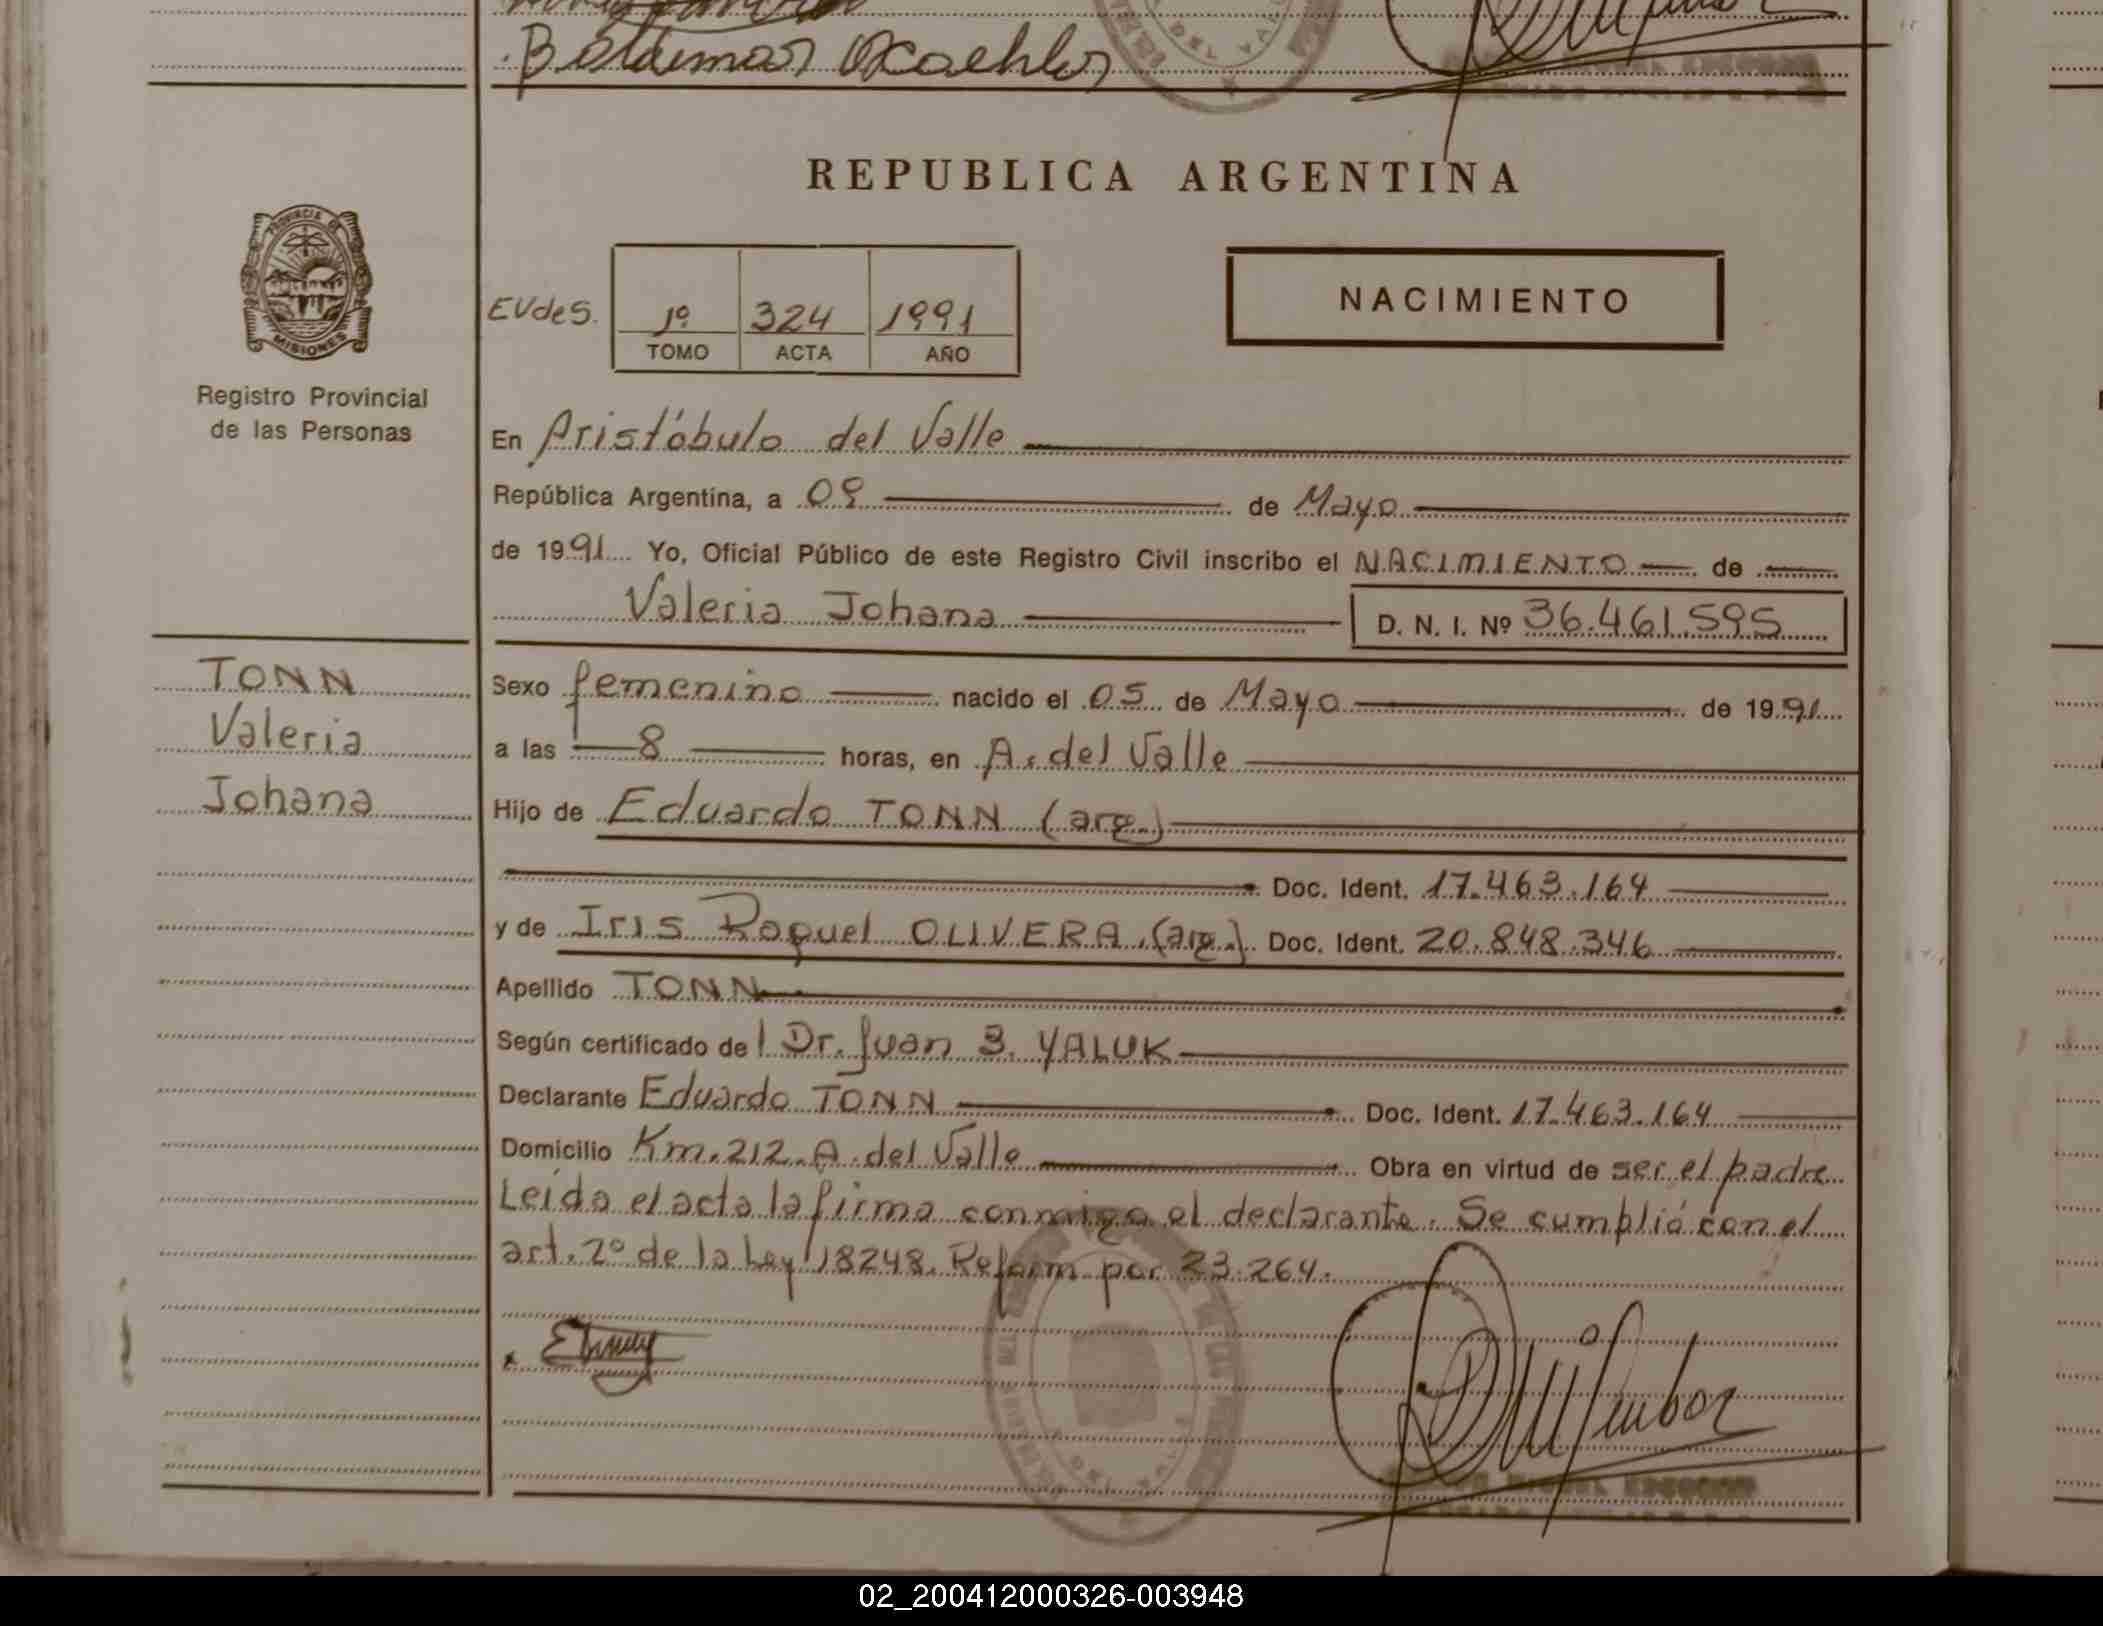 Boldemar Koehler
REPUBLICA ARGENTINA
PROVINCIA DE
MISIONES
Registro Provincial
de las Personas
EVdeS.
1º 324 1991
TOMO ACTA AÑO
NACIMIENTO
En Aristóbulo del Valle
República Argentina, a 09 de Mayo
de 1991 Yo, Oficial Público de este Registro Civil inscribo el NACIMIENTO de
Valeria Johana D. N. I. Nº 36.461.595
TONN
Valeria
Johana
Sexo femenino nacido el 05 de Mayo de 1991
a las 8 horas, en A. del Valle
Hijo de Eduardo TONN (arg.)
Doc. Ident. 17.463.164
y de Iris Raquel OLIVERA (arg.) Doc. Ident. 20.848.346
Apellido TONN
Según certificado del Dr. Juan B. YALUK
Declarante Eduardo TONN Doc. Ident. 17.463.164
Domicilio Km. 212 A. del Valle Obra en virtud de ser el padre
Leída el acta la firma conmigo el declarante. Se cumplió con el
art. 2º de la Ley 18248. Reform por 23.264.
02_200412000326-003948